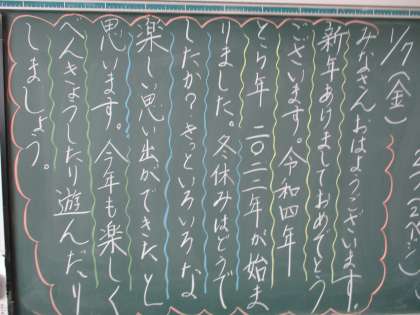 1/7(金)
みなさんおはようございます。
新年あけましておめでとう
ございます。令和四年
とら年 二〇二二年が始ま
りました。冬休みはどうで
したか?きっといろいろな
楽しい思い出ができたと
思います。今年も楽しく
べんきょうしたり遊んだり
しましょう。